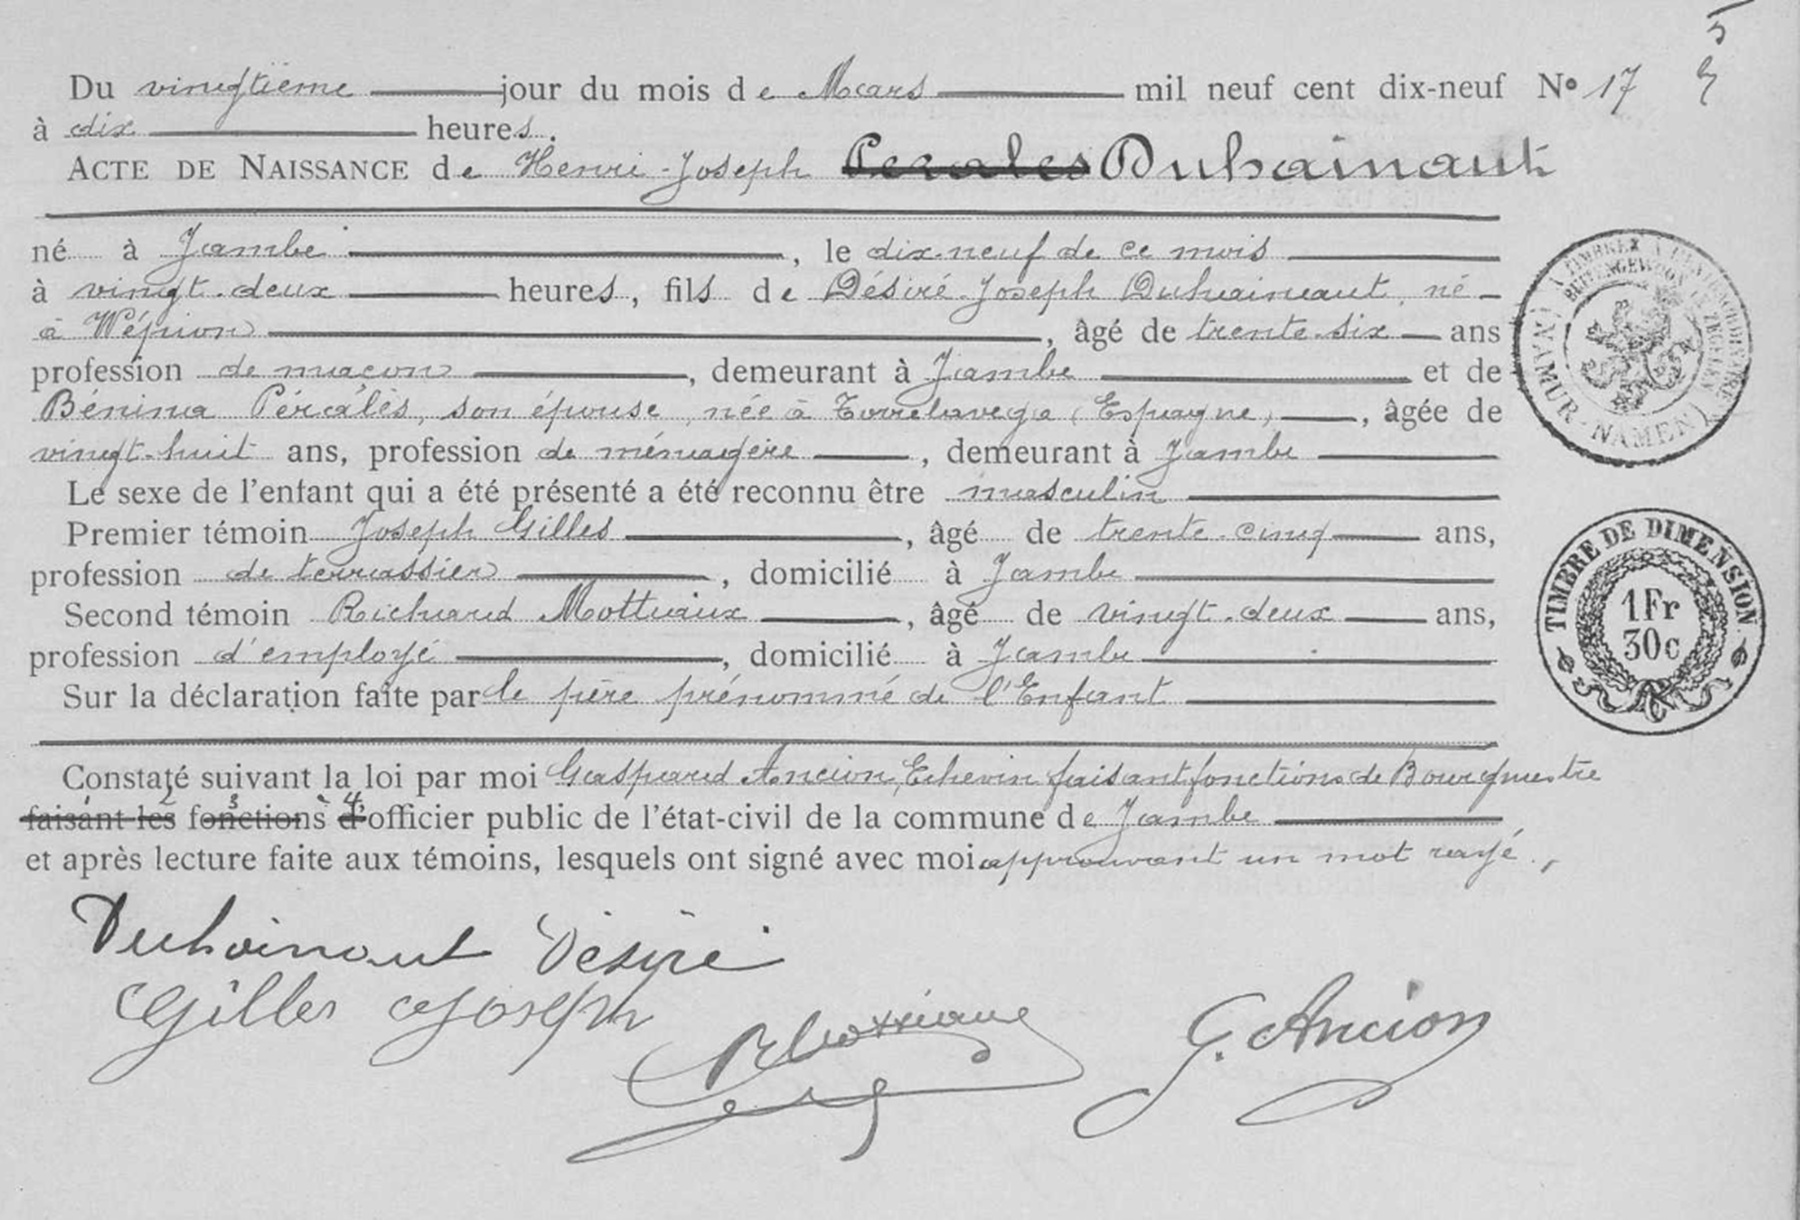 5
9
Du vingtième jour du mois de Mars mil neuf cent dix-neuf No 17
à dix heures.
ACTE DE NAISSANCE de Henri-Joseph Perales Duhainaut
né à Jambe, le dix-neuf de ce mois
à vingt-deux heures, fils de Désiré-Joseph Duhainaut, né
à Wépion, âgé de trente-six ans
profession de maçon, demeurant à Jambe et de
Bénina Péralès, son épouse, née à Torrelavega (Espagne), âgée de
vingt-huit ans, profession de ménagère, demeurant à Jambe
Le sexe de l'enfant qui a été présenté a été reconnu être masculin
Premier témoin Joseph Gilles, âgé de trente-cinq ans,
profession de terrassier, domicilié à Jambe
Second témoin Richard Mottiaux, âgé de vingt-deux ans,
profession d'employé, domicilié à Jambe
Sur la déclaration faite par le père prénommé de l'Enfant
Constaté suivant la loi par moi Gaspard Ancion, Echevin faisant fonctions de Bourgmestre
1 2 3 4
faisant les fonctions d'officier public de l'état-civil de la commune de Jambe
et après lecture faite aux témoins, lesquels ont signé avec moi approuvant un mot rayé.
Duhainaut Désiré
Gilles Joseph
G. Ancion
NAMUR-NAMEN
TIMBRE DE DIMENSION
1Fr
30c